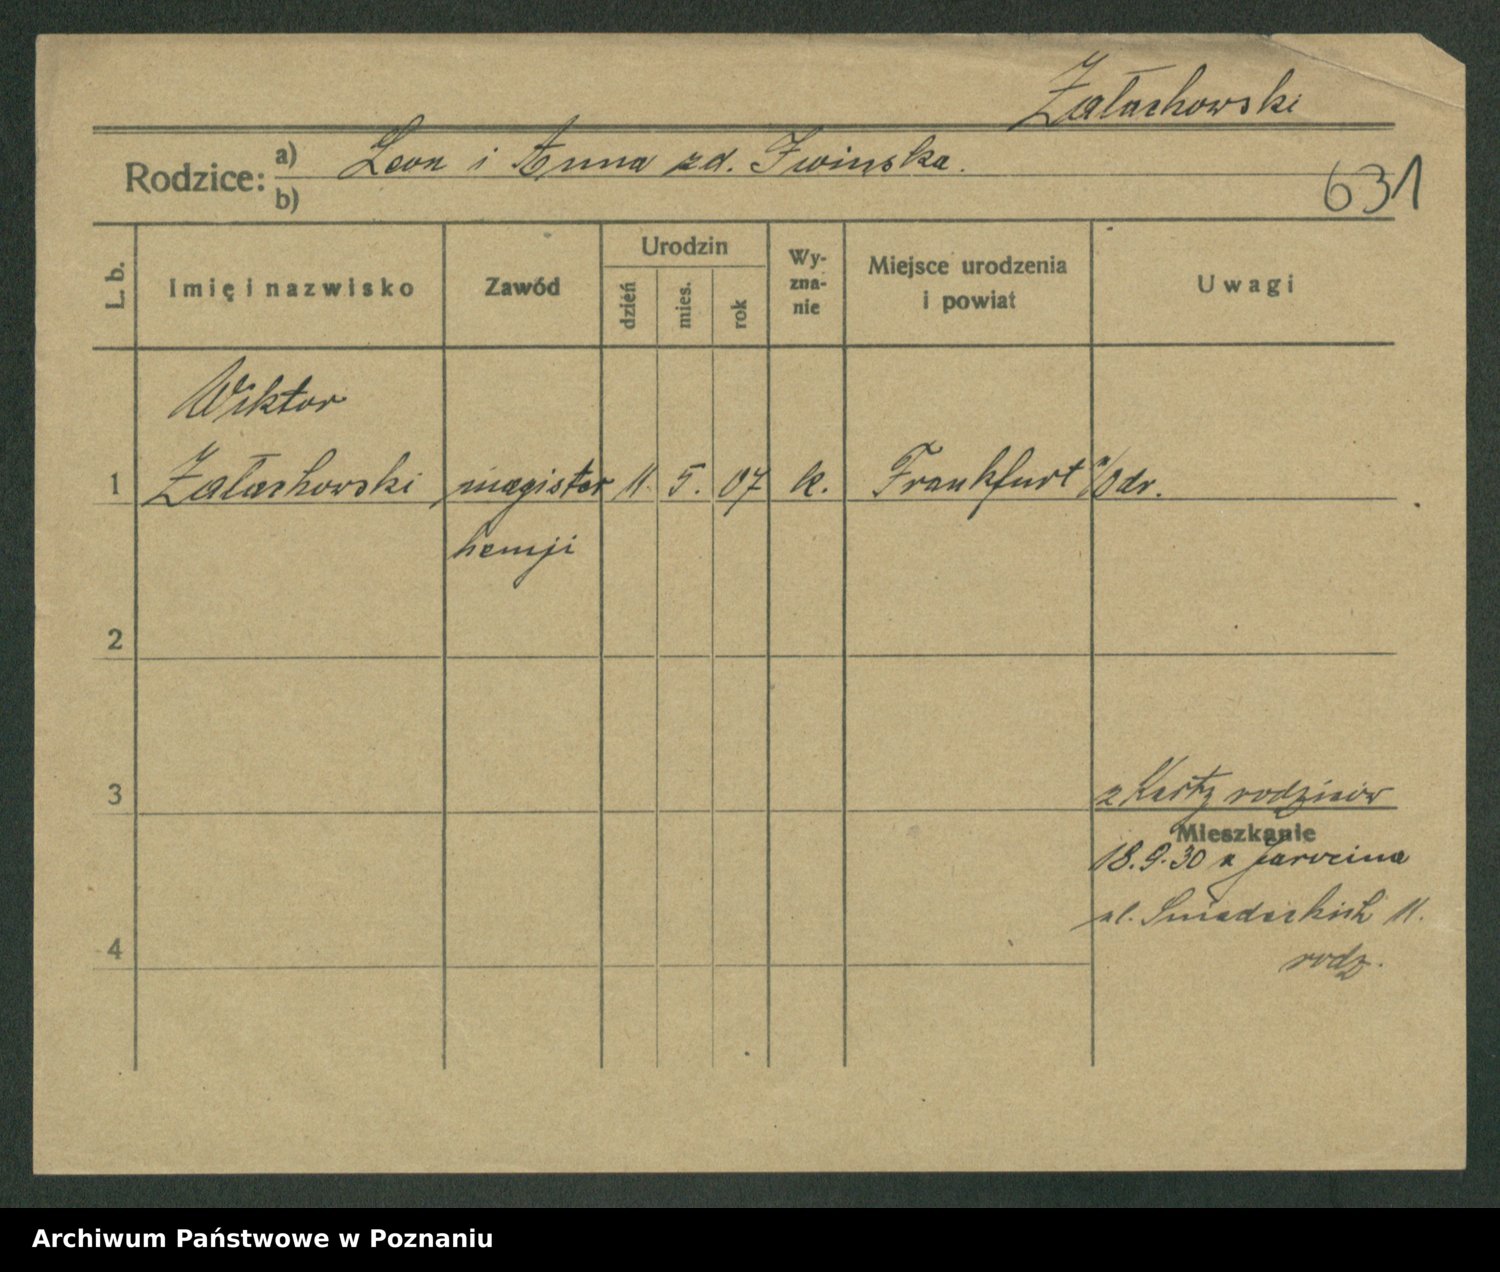 Załachowski
Rodzice: a) Leon i Anna zd. Iwińska.
b)
631
L. b.
Imię i nazwisko
Zawód
Urodzin
dzień
mies.
rok
Wy-
zna-
nie
Miejsce urodzenia
i powiat
Uwagi
Wiktor
1 Załachowski magister 11. 5. 07 k. Frankfurt n/Odr.
hemji
2
3
z Karty rodziców
Mieszkanie
18.9.30 z Jarocina
ul. Śniadeckich 11.
4
rodz.
Archiwum Państwowe w Poznaniu